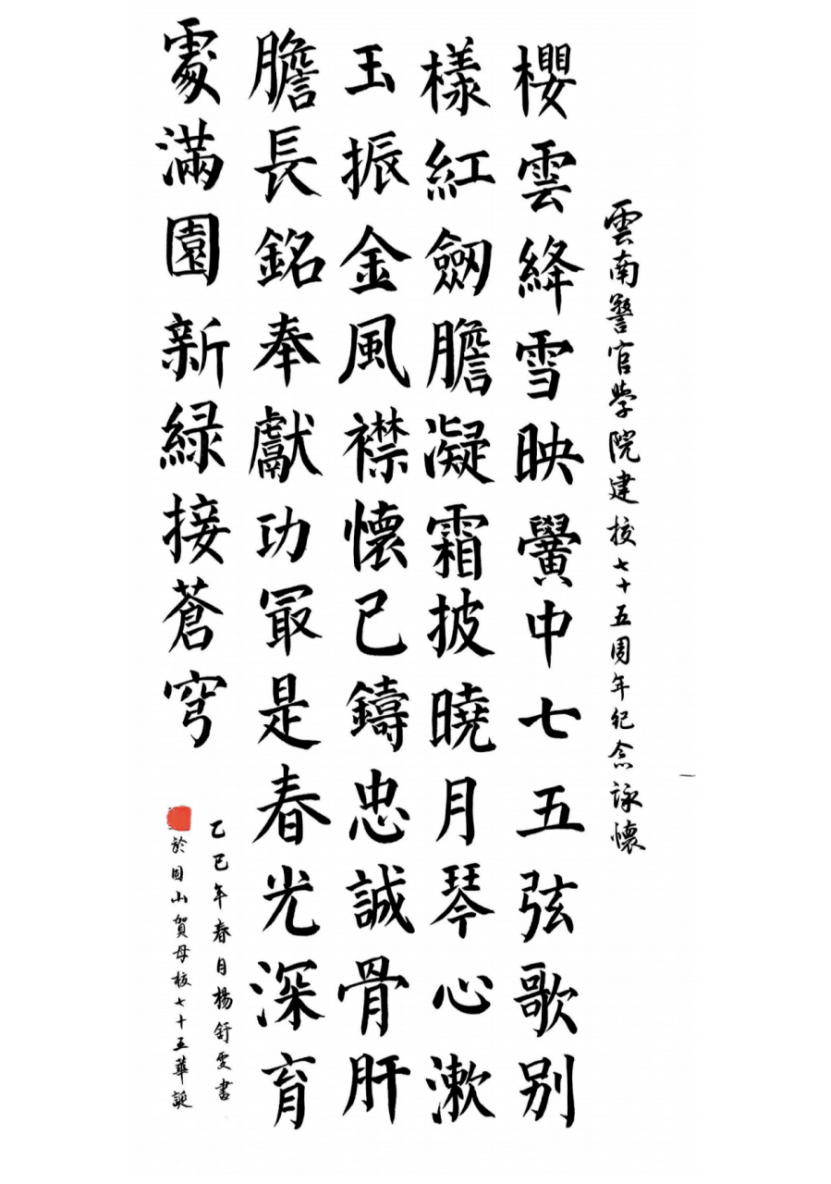 雲南警官學院建校七十五周年紀念詠懷
櫻雲絳雪映黌中七五弦歌别
樣紅劒膽凝霜披曉月琴心漱
玉振金風襟懷已鑄忠誠骨肝
膽長銘奉獻功最是春光深育
處滿園新緑接蒼穹
乙巳年春月楊舒雯書
於目山賀母校七十五華誕